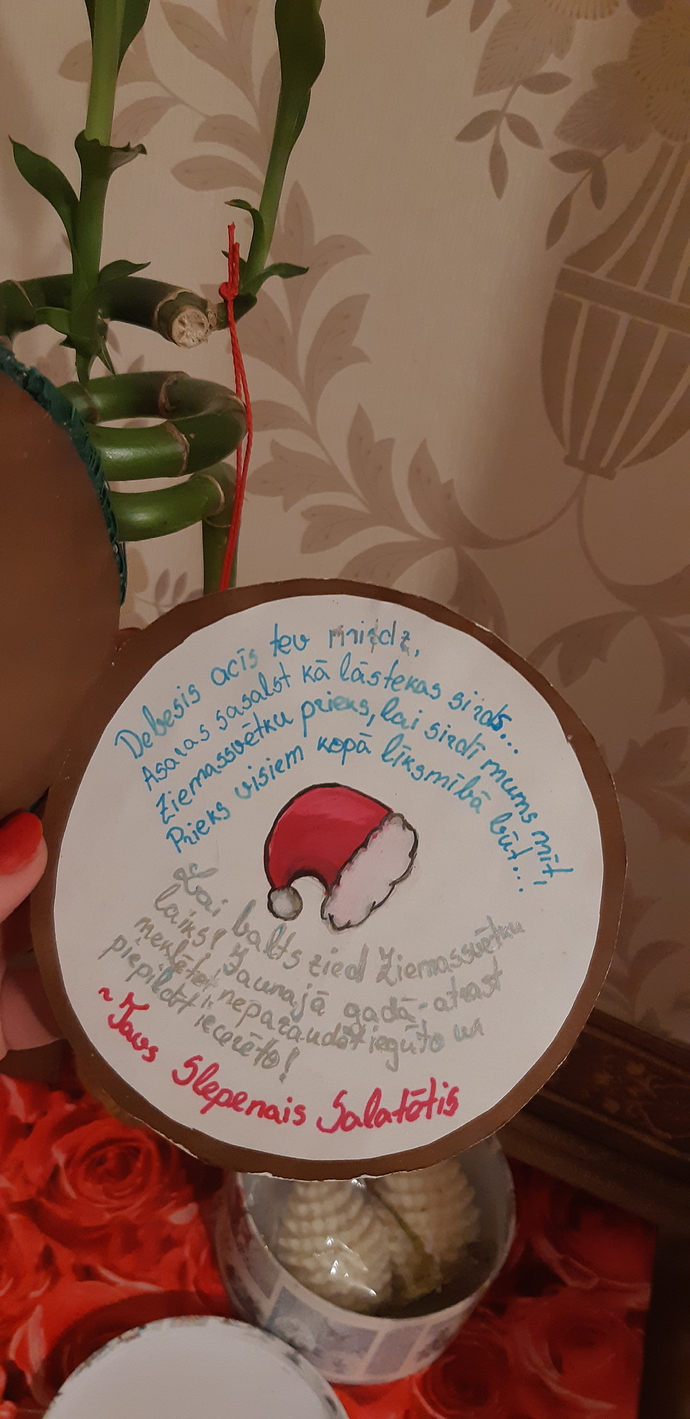 Debesis acīs tev mirdz,
Asaras sasalst kā lāstekas sirds...
Ziemassvētku prieks, lai sirdī mums mīt,
Prieks visiem kopā līksmībā būt...
Lai balts zied Ziemassvētku
laiks! Jaunajā gadā - atrast
meklēto, nepazaudēt iegūto un
piepildīt iecerēto!
~Tavs Slepenais Salatētis